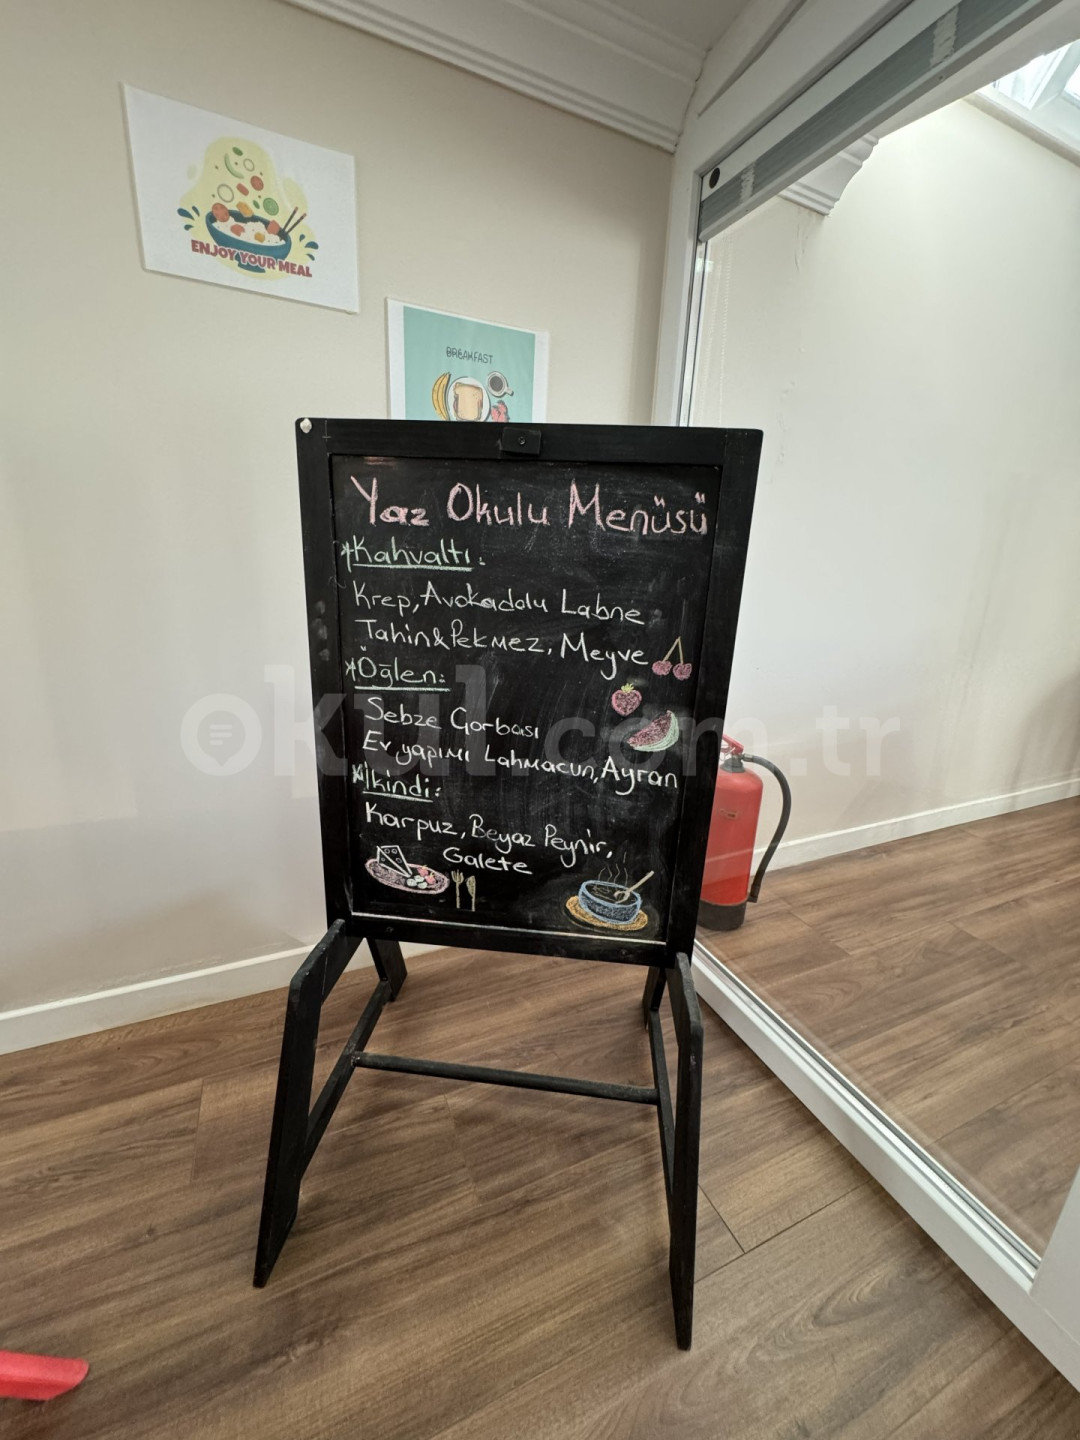 ENJOY YOUR MEAL
BREAKFAST
Yaz Okulu Menüsü
*Kahvaltı:
Krep, Avokadolu Labne
Tahin&Pekmez, Meyve
*Öğlen:
Sebze Çorbası
Ev yapımı Lahmacun, Ayran
*İkindi:
Karpuz, Beyaz Peynir,
Galete
okul.com.tr